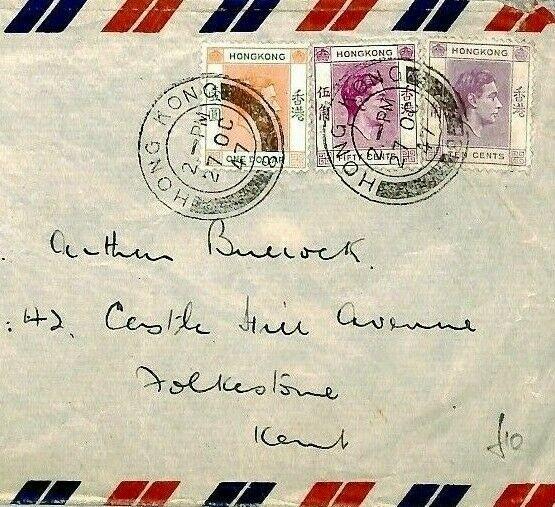 HONGKONG
壹圓
香港
ONE DOLLAR
HONGKONG
伍角
香港
FIFTY CENTS
HONGKONG
香港
TEN CENTS
HONG KONG
2 - PM
27 OC
47
8
HONG KONG
2 - PM
27 OC
47
Arthur Bullock.
42. Castle Hill Avenue
Folkestone
Kent
£10